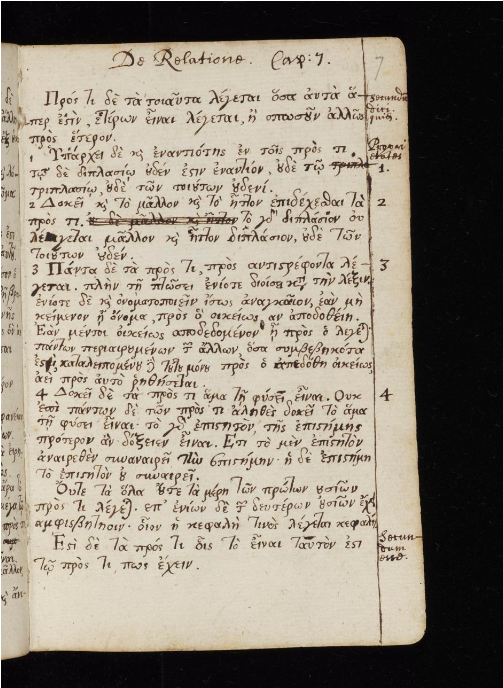 De Relatione. Cap: 7.
7
Πρός τι δὲ τὰ τοιαῦτα λέγεται ὅσα ἀυτὰ ἅ-
περ ἐστὶν, ἑτέρων εἶναι λέγεται, ἢ ὁπωσοῦν ἄλλως
πρὸς ἕτερον.
secundum
dici
1 Ὑπάρχει δὲ κ̀ ἐναντιότης ἐν τοῖς πρός τι.
τῷ δὲ διπλασίῳ ȣ̓δέν ἐστιν ἐναντίον, ȣ̓δὲ τῷ
τριπλασίῳ, ȣ̓δὲ τῶν τοιȣ́των ȣ̓δενί.
1.
2 Δοκεῖ κ̀ τὸ μᾶλλον κ̀ τὸ ἧττον ἐπιδέχεσθαι τὰ
πρός τι. ȣ̓ δὲ μᾶλλον κ̀ ἧττον τὸ γὸ διπλάσιον ȣ̓
λέγεται μᾶλλον κ̀ ἧττον διπλάσιον, ȣ̓δὲ τῶν
τοιȣ́των ȣ̓δέν.
2
3 Πάντα δὲ τὰ πρός τι, πρὸς ἀντιστρέφοντα λέ-
γεται. πλὴν τῇ πτώσει ἐνίοτε διοίσει κτ τὴν λέξιν.
ἐνίοτε δὲ κ̀ ὀνοματοποιεῖν ἴσως ἀναγκαῖον, ἐὰν μὴ
κείμενον ᾖ ὄνομα, πρὸς ὃ οἰκείως ἂν ἀποδοθείη.
Ἐὰν μέντοι οἰκείως ἀποδεδομένον ᾖ πρὸς ὃ λέγε)
πάντων περιαιρȣμένων τ ἄλλων, ὅσα συμβεβηκότα
ἐστι, καταλειπομένȣ) τȣ́τȣ μόνȣ πρὸς ὃ ἀπεδόθη οἰκείως,
ἀεὶ πρὸς αὐτὸ ῥηθήσεται.
3
4 Δοκεῖ δὲ τὰ πρός τι ἅμα τῇ φύσει εἶναι. Ουκ
ἐπὶ πάντων δὲ τῶν πρός τι ἀληθὲς δοκεῖ τὸ ἅμα
τῇ φύσει εἶναι· τὸ γὸ ἐπιστητὸν, τῆς ἐπιστήμης
πρότερον ἂν δόξειεν εἶναι. Ετι τὸ μὲν ἐπιστητὸν
ἀναιρεθὲν συναναιρεῖ τὴν ἐπιστήμην· ἡ δὲ ἐπιστήμη
τὸ ἐπιστητὸν ȣ̓ συναιρεῖ.
4
Οὔτε τὰ ὅλα ȣ̓́τε τὰ μέρη τῶν πρώτων ȣ̓σιῶν
πρός τι λέγε). ἐπ' ἐνίων δὲ τ δευτέρων ȣ̓σιῶν ἔχει
ἀμφισβήτησιν· οἷον ἡ κεφαλή τινὸς λέγεται κεφαλή.
Ἔστι δὲ τὰ πρός τι οἷς τὸ εἶναι ταὐτὸν ἐστι
τῷ πρός τι, πως ἔχειν.
Secun-
dum
esse.